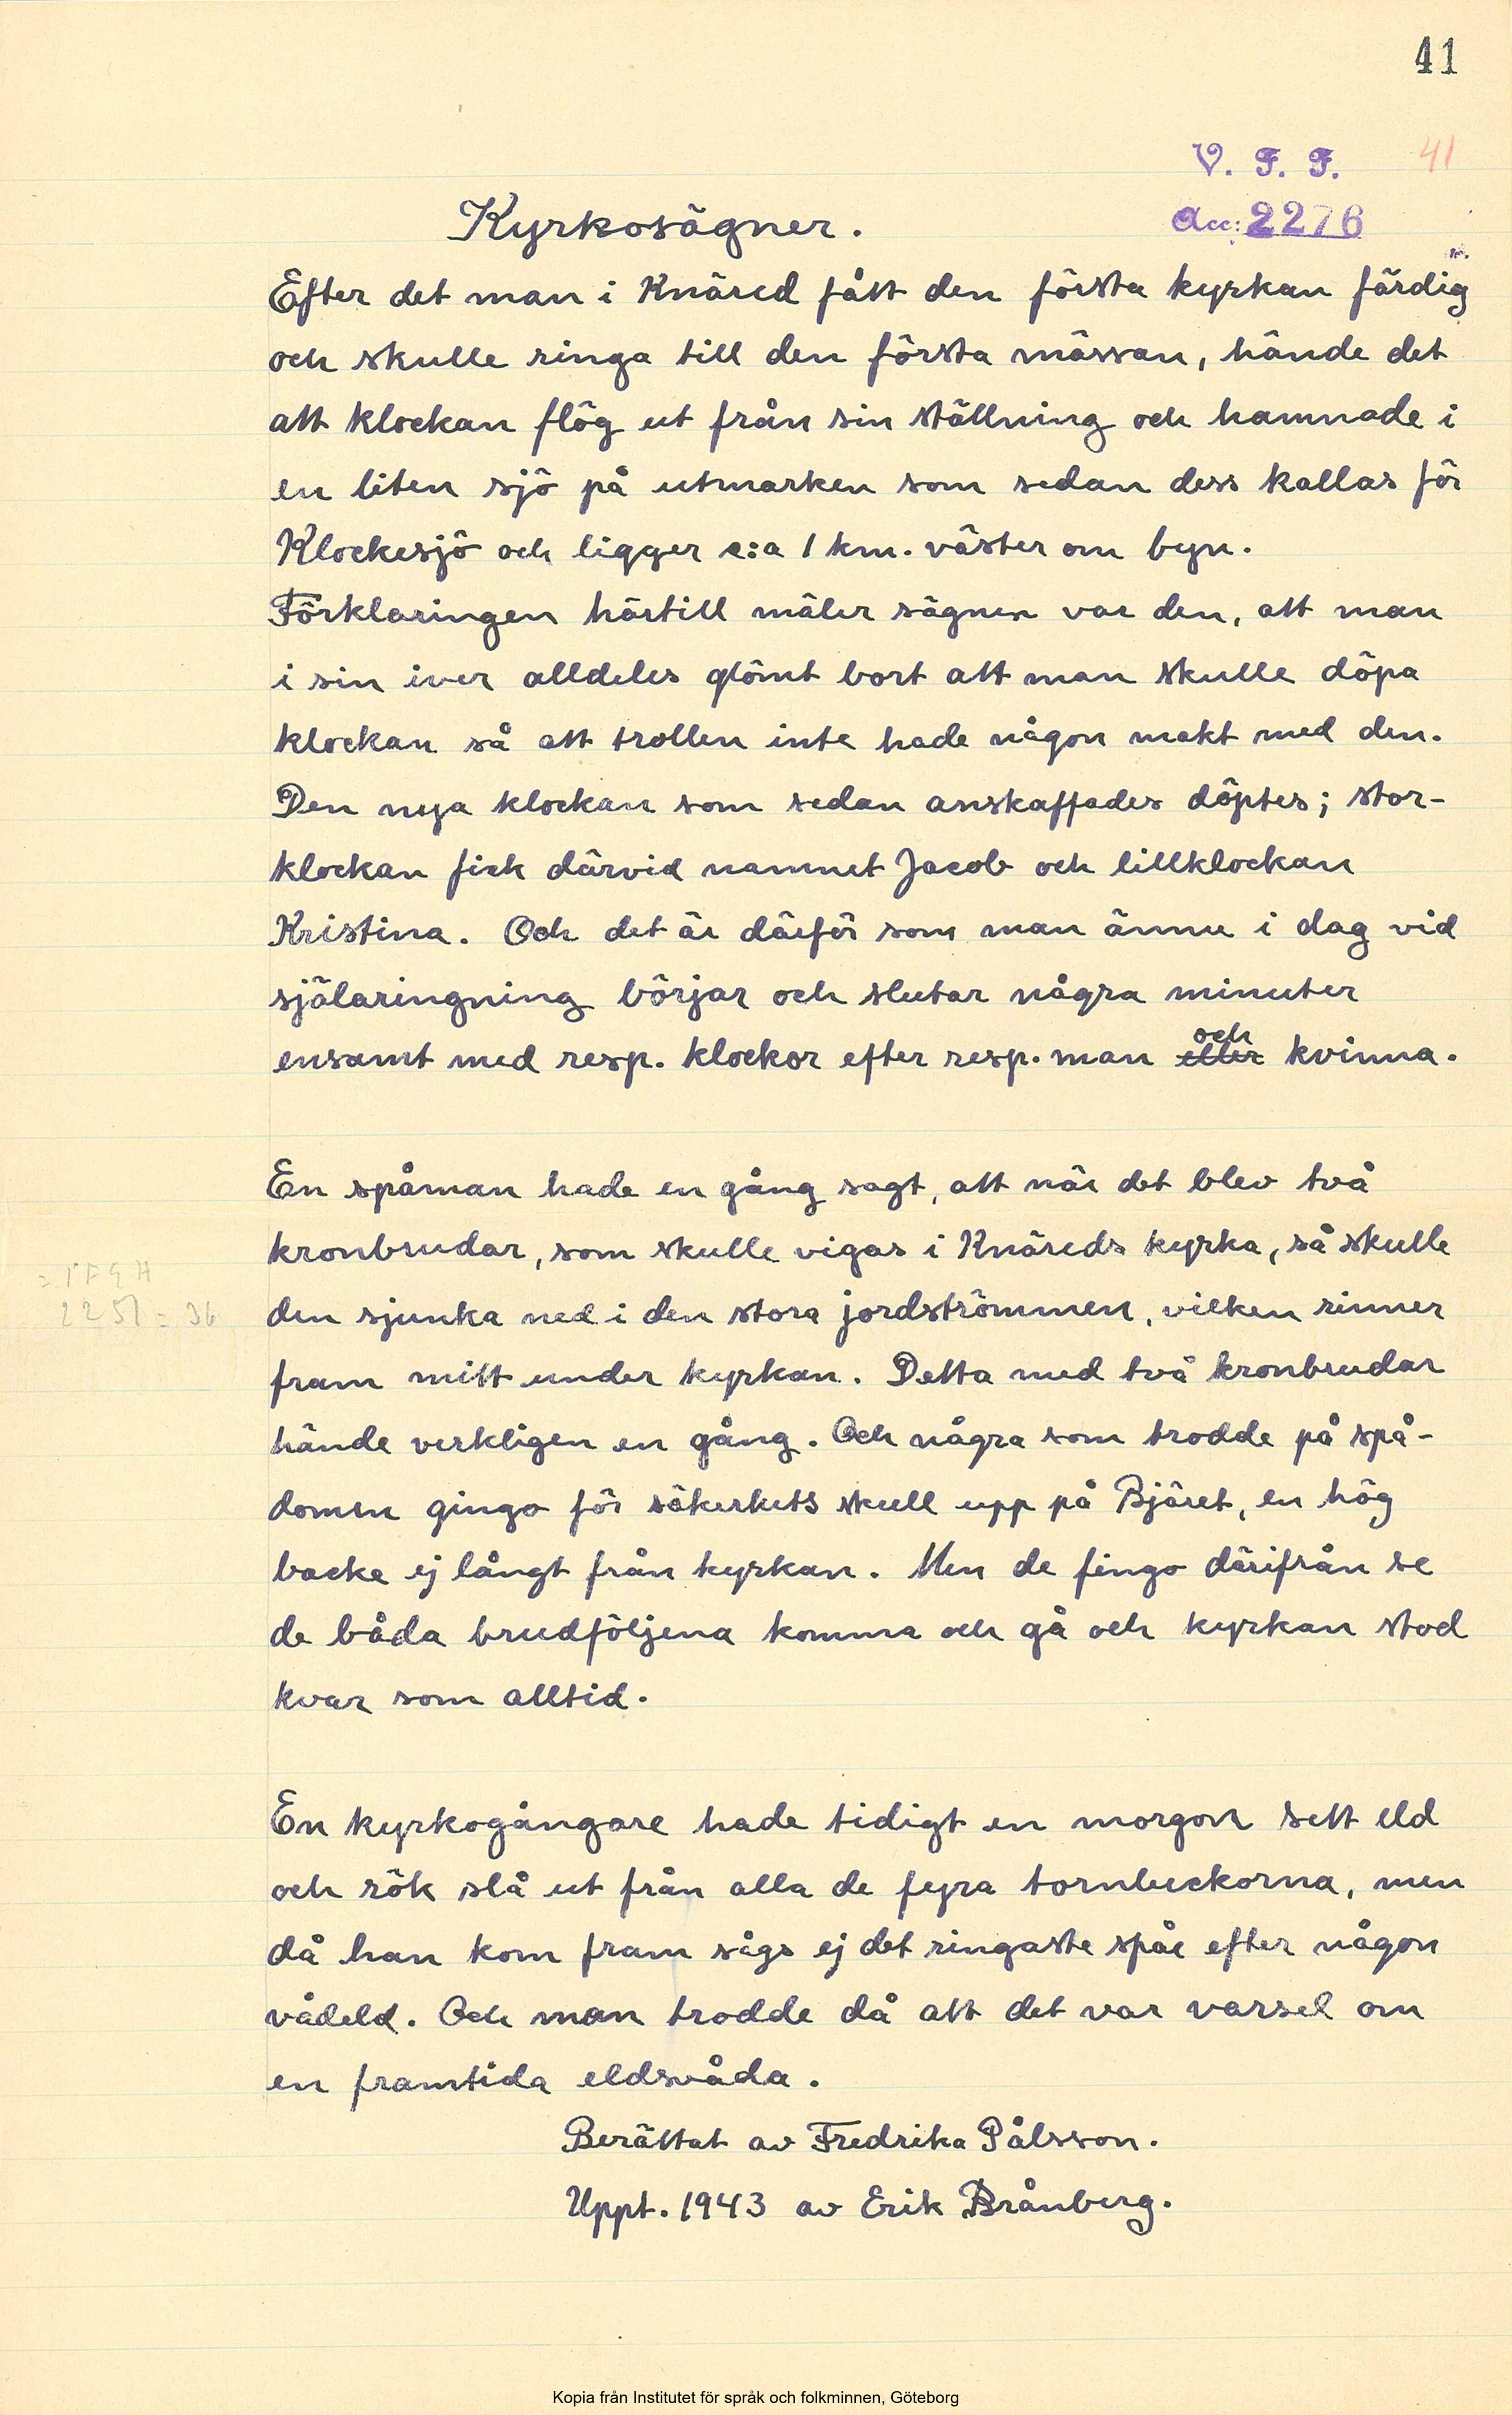 41
V. F. F. 41
Acc: 2276
Kyrkosägner.
Efter det man i Knäred fått den första kyrkan färdig
och skulle ringa till den första mässan, hände det
att klockan flög ut från sin ställning och hamnade i
en liten sjö på utmarken som sedan dess kallas för
Klockesjö och ligger c:a 1 km. väster om byn.
Förklaringen härtill mäler sägnen var den, att man
i sin iver alldeles glömt bort att man skulle döpa
klockan så att trollen inte hade någon makt med den.
Den nya klockan som sedan anskaffades döptes; stor-
klockan fick därvid namnet Jacob och lillklockan
Kristina. Och det är därför som man ännu i dag vid
själaringning börjar och slutar några minuter
ensamt med resp. klockor efter resp. man eller och kvinna.
En spåman hade en gång sagt, att när det blev två
kronbrudar, som skulle vigas i Knäreds kyrka, så skulle
den sjunka ned i den stora jordströmmen, vilken rinner
fram mitt under kyrkan. Detta med två kronbrudar
hände verkligen en gång. Och några som trodde på spå-
domen gingo för säkerhets skull upp på Bjäret, en hög
backe ej långt från kyrkan. Men de fingo därifrån se
de båda brudföljena komma och gå och kyrkan stod
kvar som alltid.
En kyrkogångare hade tidigt en morgon sett eld
och rök slå ut från alla de fyra tornluckorna, men
då han kom fram sågs ej det ringaste spår efter någon
vådeld. Och man trodde då att det var varsel om
en framtida eldsvåda.
Berättat av Fredrika Pålsson.
Uppt. 1943 av Erik Brånberg.
Kopia från Institutet för språk och folkminnen, Göteborg